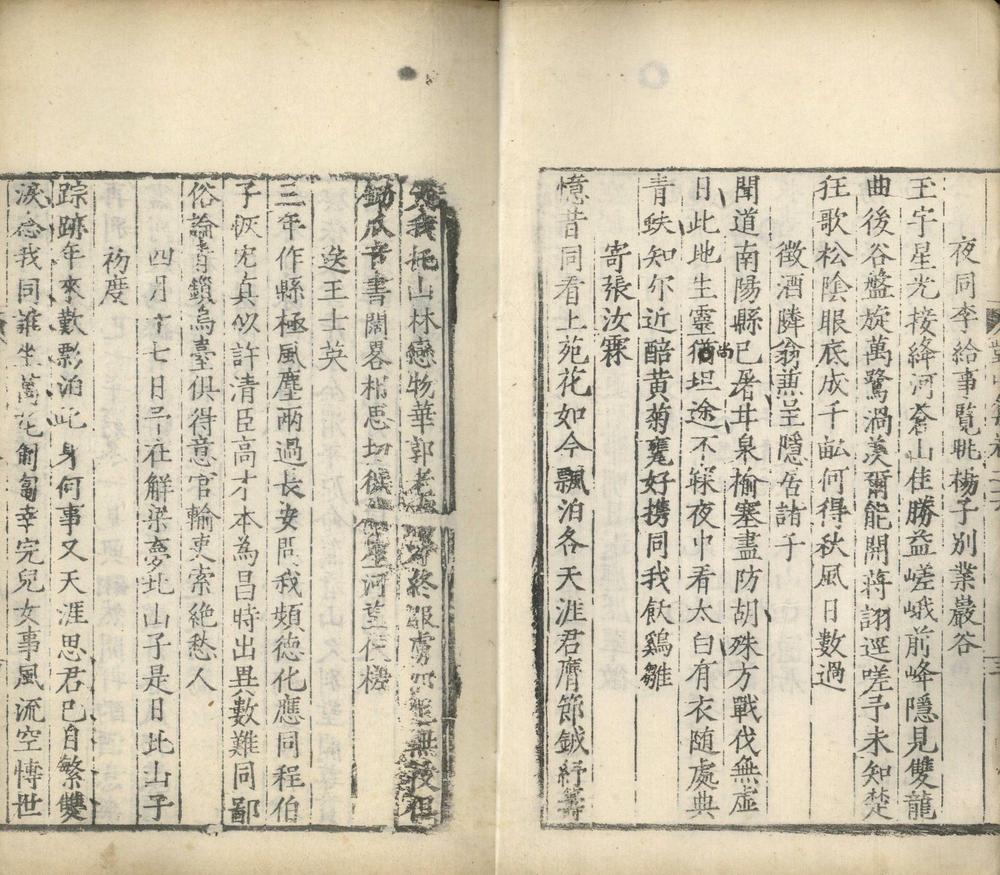 夜同李給事覽眺楊子別業巖谷
玉宇星光接絳河蒼山佳勝益嵯峨前峰隱見雙龍
曲後谷盤旋萬鷺渦羨爾能開蔣詡逕嗟予未知楚
狂歌松陰眼底成千畝何得秋風日數過
徵酒隣翁薫呈隱居諸子
聞道南陽縣已屠井泉榆塞盡防胡殊方戰伐無虛
日此地生靈猶尚坦途不寐夜中看太白有衣随處典
青蚨知尔近醅黄菊甕好携同我飲鷄雛
寄張汝霖
憶昔同看上苑花如今飄泊各天涯君膺節鉞紓籌
我托山林戀物華郭老 終報虜 無沒但
鋤瓜音書闊畧相思切 星河 樓
送王士英
三年作縣極風塵兩過長安問我頻德化應同程伯
子恢宏真似許清臣高才本為昌時出異數難同鄙
俗論青鎖烏臺俱得意官輸吏索絶愁人
四月十七日予在解梁夢北山子是日北山子
初度
踪跡年來歎影泊此身何事又天涯思君已自繁雙
淚念我同誰坐萬花削 幸完兒女事風流空愽世